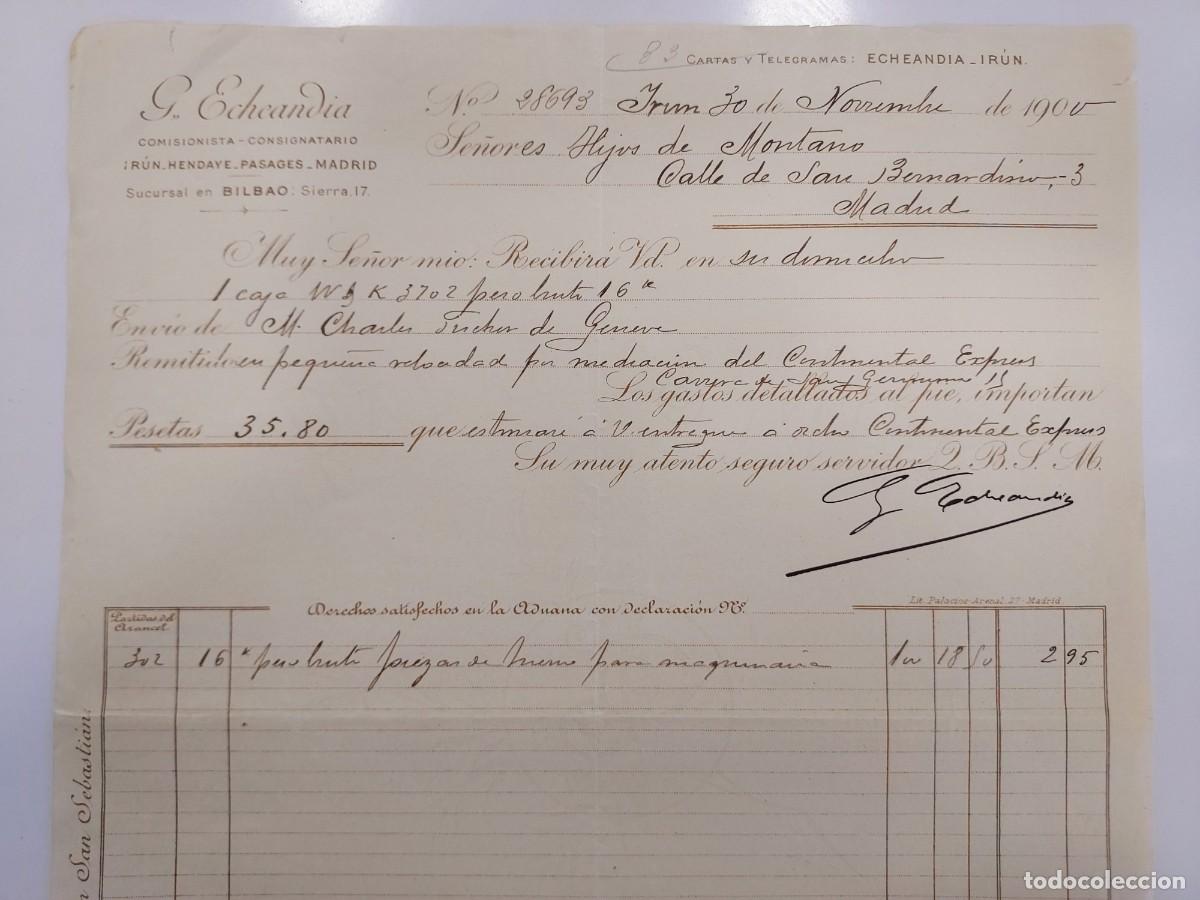 83 CARTAS Y TELEGRAMAS: ECHEANDIA-IRÚN.
G. Echeandia
COMISIONISTA-CONSIGNATARIO
IRÚN-HENDAYE-PASAGES-MADRID
Sucursal en BILBAO: Sierra, 17.
Nº 28693 Irun 30 de Noviembre de 1900
Señores Hijos de Montano
Calle de San Bernardino, -3
Madrid
Muy Señor mio: Recibirá Vd. en su domicilio
1 caja W K 3702 peso bruto 16 k
Envío de M. Charles de Geneve
Remitido en pequeña velocidad por mediacion del Continental Express
Carrera de San Geronimo 15
Los gastos detallados al pie, importan
Pesetas 35.80 que estimaré á V entregue á orden Continental Express
Su muy atento seguro servidor Q. B. S. M.
G Echeandia
Derechos satisfechos en la Aduana con declaración Nº
Lit. Palacios-Arenal 27-Madrid
Partidas del Arancel
302 16 k peso bruto piezas de hierro para maquinaria 100 18 50 2 95
San Sebastián
todocoleccion